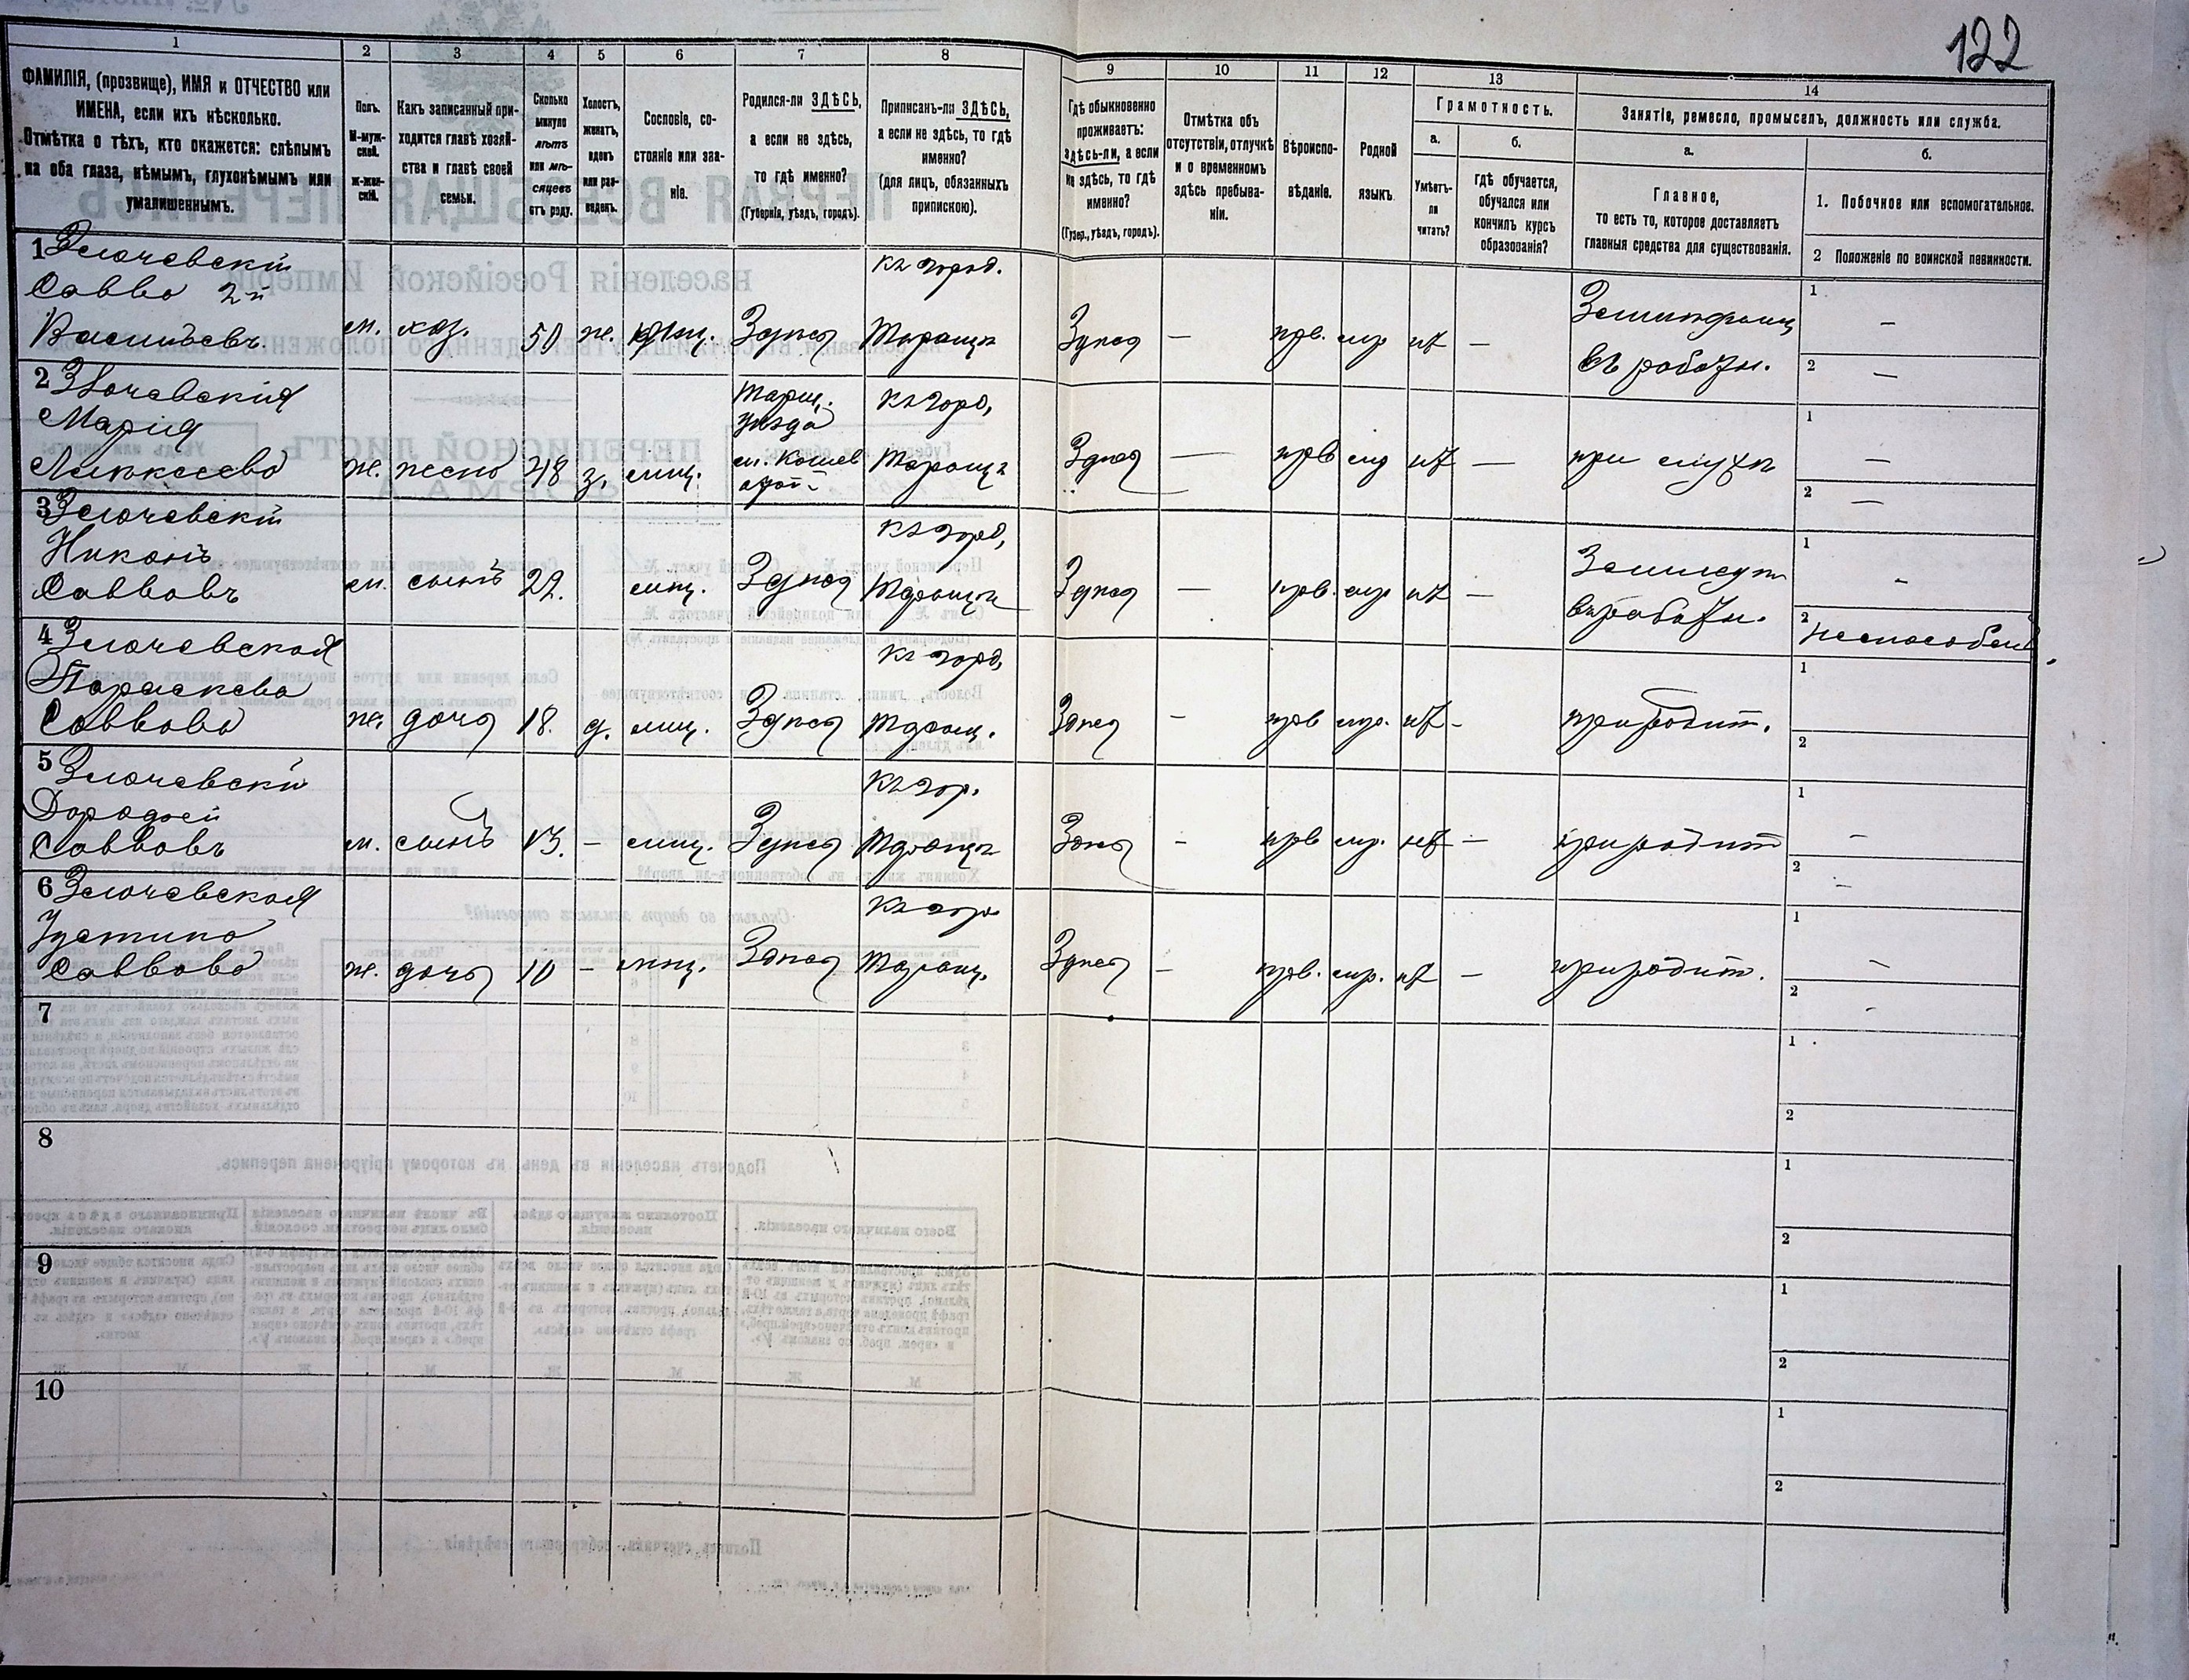 122
1
2
3
4
5
6
7
8
9
10
11
12
13
14
ФАМИЛІЯ, (прозвище), ИМЯ и ОТЧЕСТВО или
ИМЕНА, если ихъ нѣсколько.
Отмѣтка о тѣхъ, кто окажется: слѣпымъ
на оба глаза, нѣмымъ, глухонѣмымъ или
умалишеннымъ.
Полъ.
М-муж-
ской.
Ж-жен-
скій.
Какъ записанный при-
ходится главѣ хозяй-
ства и главѣ своей
семьи.
Сколько
минуло
лѣтъ
или мѣ-
сяцевъ
отъ роду.
Холостъ,
женатъ,
вдовъ
или раз-
веденъ.
Сословіе, со-
стояніе или зва-
ніе.
Родился-ли ЗДѢСЬ,
а если не здѣсь,
то гдѣ именно?
(Губернія, уѣздъ, городъ).
Приписанъ-ли ЗДѢСЬ,
а если не здѣсь, то гдѣ
именно?
(для лицъ, обязанныхъ
припискою).
Гдѣ обыкновенно
проживаетъ:
здѣсь-ли, а если
не здѣсь, то гдѣ
именно?
(Губер., уѣздъ, городъ).
Отмѣтка объ
отсутствіи, отлучкѣ
и о временномъ
здѣсь пребыва-
ніи.
Вѣроиспо-
вѣданіе.
Родной
языкъ.
Грамотность.
а.
Умѣетъ-
ли
читать?
б.
гдѣ обучается,
обучался или
кончилъ курсъ
образованія?
Занятіе, ремесло, промыселъ, должность или служба.
а.
Главное,
то есть то, которое доставляетъ
главныя средства для существованія.
б.
1. Побочное или вспомогательное.
2 Положеніе по воинской повинности.
1 Злочевскій
Савва 2й
Васильевъ
м. хоз. 50 ж. мѣщ. Здѣсь
къ город.
Таращѣ
Здѣсь — прв. мр нѣ —
въ работы.
1 —
2 —
2 Злочевскія
Марія
Алексеева
ж. жена 48 з. мѣщ.
Таращ.
уѣзда
къ горо,
Тараща
Здѣсь — прв мр нѣ —
при мужѣ
1 —
2 —
3 Злочевскій
Никонъ
Саввовъ
м. сынъ 22. мѣщ. Здѣсь
къ горо,
Таращѣ
Здѣсь — прв. мр нѣ —
въ работы.
1 -
2 неспособенъ.
4 Злочевская
Параскева
Саввова
ж. дочь 18. д. мѣщ. Здѣсь
къ горо,
Таращ.
Здѣсь - прв мр. нѣ -
при родит.
1
2
5 Злочевскій
Дорофей
Саввовъ
м. сынъ 13. - мѣщ. Здѣсь
къ гор.
Таращѣ
Здѣсь - прв мр. нѣ —
при родит
1 —
2 —
6 Злочевская
Устина
Саввова
ж. дочь 10 - мѣщ. Здѣсь
къ горо
Таращ.
Здѣсь — прв. мр. нѣ —
при родит.
1 —
2 -
7
1
2
8
1
2
9
1
2
10
1
2